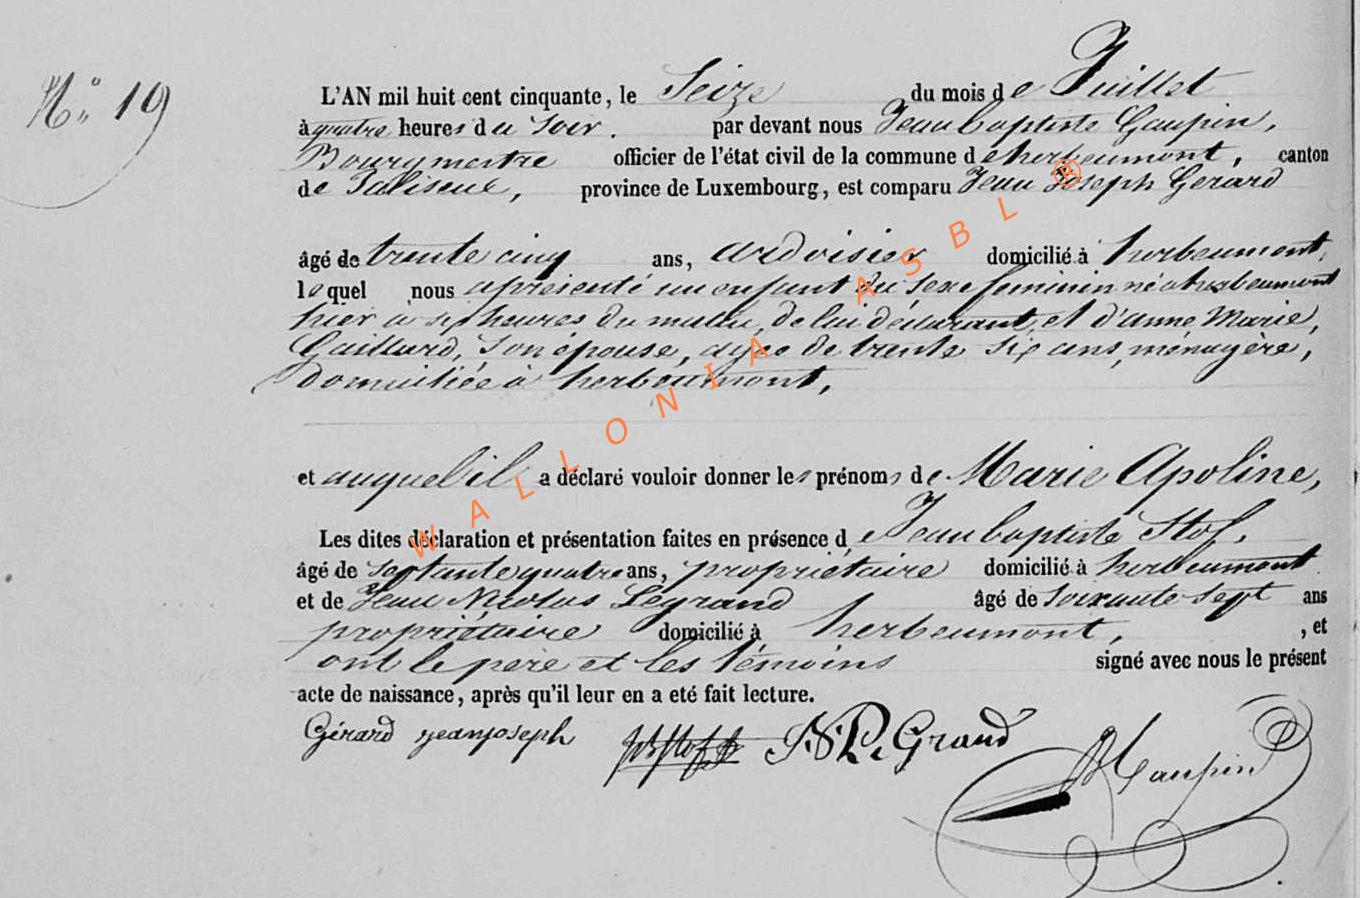 N.° 19
L'AN mil huit cent cinquante, le Seize du mois de Juillet
à quatre heures du soir. par devant nous Jean baptiste Gaupin,
Bourgmestre officier de l'état civil de la commune de herbeumont, canton
de Paliseul, province de Luxembourg, est comparu Jean Joseph Gerard
âgé de trente cinq ans, ardoisier domicilié à herbeumont,
lequel nous a présenté un enfant du sexe féminin né à herbeumont
hier a six heures du matin, de lui déclarant, et d'anne Marie,
Gaillard, son épouse, agée de trente six ans, ménagère,
domiciliée à herbeumont,
et auquel il a déclaré vouloir donner les prénoms de Marie Apoline,
Les dites déclaration et présentation faites en présence de Jean baptiste Stof,
âgé de septante quatre ans, propriétaire domicilié à herbeumont
et de Jean Nicolas Legrand âgé de soixante sept ans
propriétaire domicilié à herbeumont, , et
ont le père et les témoins signé avec nous le présent
acte de naissance, après qu'il leur en a eté fait lecture.
Gérard jean joseph JB Stof J N Le Grand Gaupin
WALLONIA ASBL ®